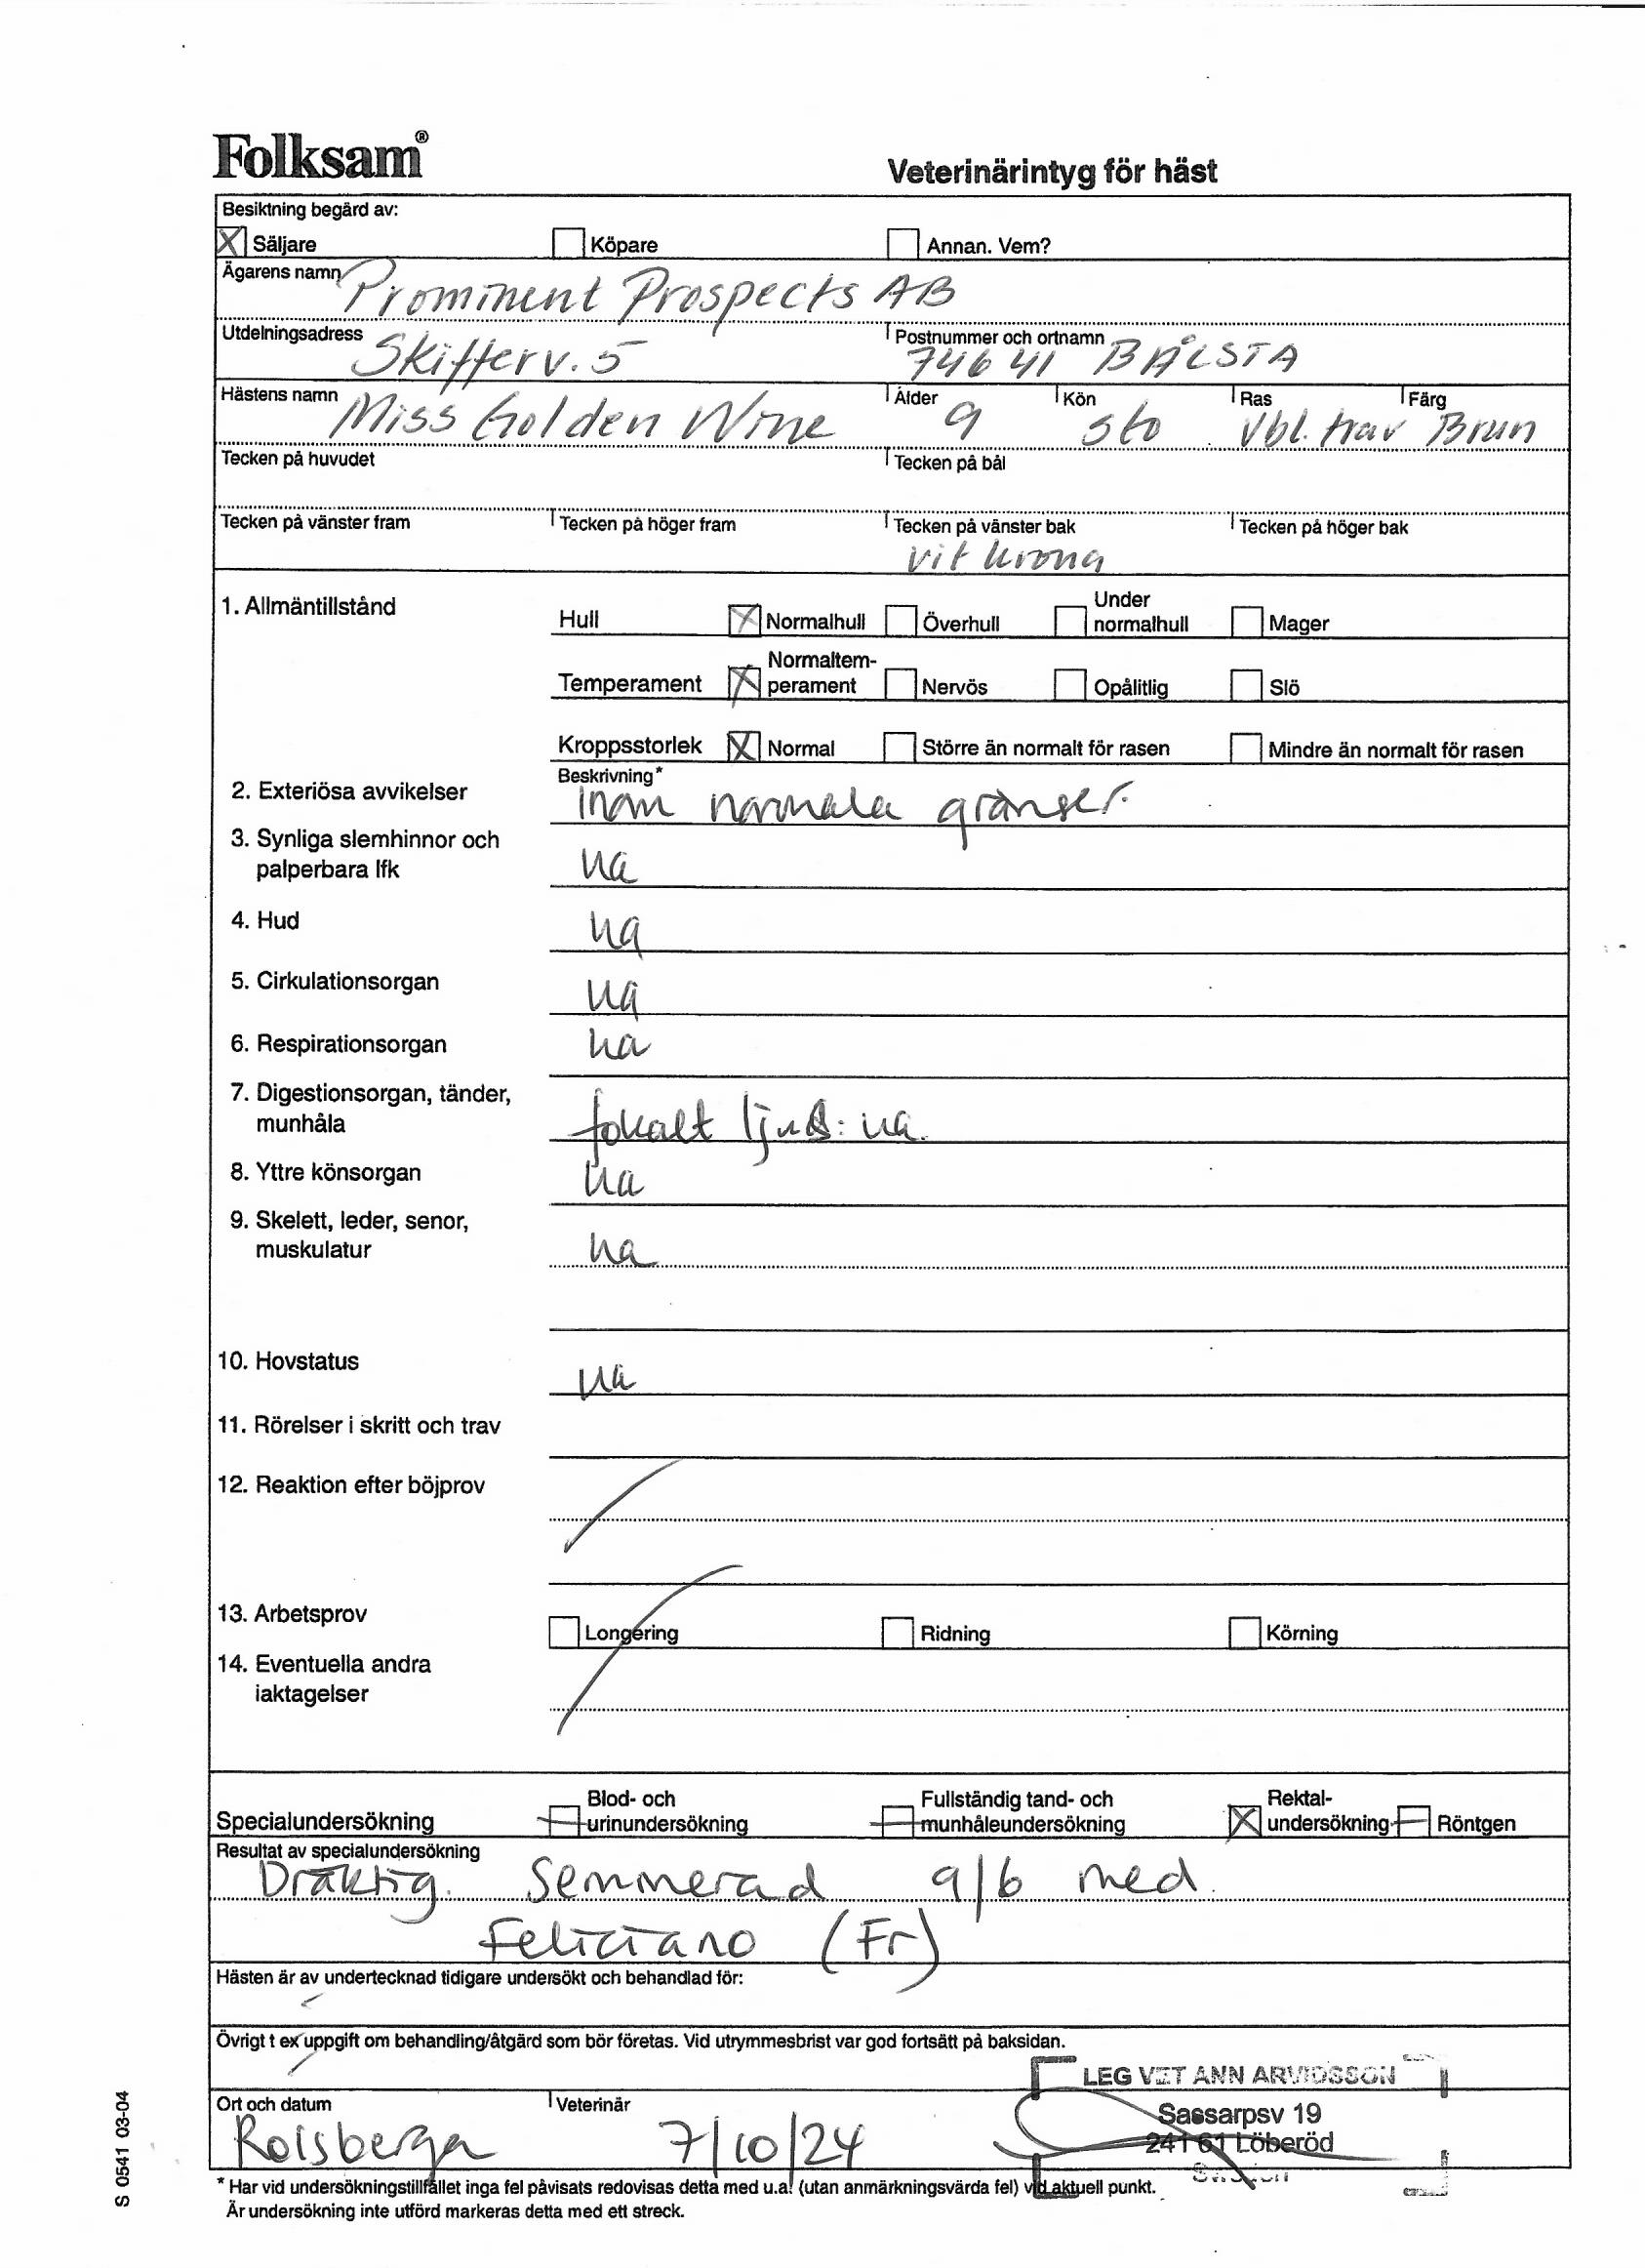 Folksam®
Veterinärintyg för häst
Besiktning begärd av:
X Säljare Köpare Annan. Vem?
Ägarens namn Prominent Prospects AB
Utdelningsadress Skifferv. 5 Postnummer och ortnamn 746 41 BÅLSTA
Hästens namn Miss Golden Wine Ålder 9 Kön Sto Ras Vbl. trav Färg Brun
Tecken på huvudet Tecken på bål
Tecken på vänster fram Tecken på höger fram Tecken på vänster bak Tecken på höger bak
vit krona
1. Allmäntillstånd Hull X Normalhull Överhull Under normalhull Mager
Temperament X Normaltem-perament Nervös Opålitlig Slö
Kroppsstorlek X Normal Större än normalt för rasen Mindre än normalt för rasen
Beskrivning*
2. Exteriösa avvikelser Inom normala gränser.
3. Synliga slemhinnor och
palperbara lfk ua
4. Hud ua
5. Cirkulationsorgan ua
6. Respirationsorgan ua
7. Digestionsorgan, tänder,
munhåla fokalt ljus: ua.
8. Yttre könsorgan ua
9. Skelett, leder, senor,
muskulatur ua
10. Hovstatus ua
11. Rörelser i skritt och trav
12. Reaktion efter böjprov
13. Arbetsprov Longering Ridning Körning
14. Eventuella andra
iaktagelser
Specialundersökning Blod- och urinundersökning Fullständig tand- och munhåleundersökning X Rektal-undersökning Röntgen
Resultat av specialundersökning
Dräktig. Semmerad 9/6 med
Feliciano (Fr)
Hästen är av undertecknad tidigare undersökt och behandlad för:
Övrigt t ex uppgift om behandling/åtgärd som bör företas. Vid utrymmesbrist var god fortsätt på baksidan.
LEG VET ANN ARVIDSSON
Sassarpsv 19
241 61 Löberöd
Sweden
Ort och datum Veterinär
7/10/24
* Har vid undersökningstillfället inga fel påvisats redovisas detta med u.a. (utan anmärkningsvärda fel) vid aktuell punkt.
Är undersökning inte utförd markeras detta med ett streck.
S 0541 03-04